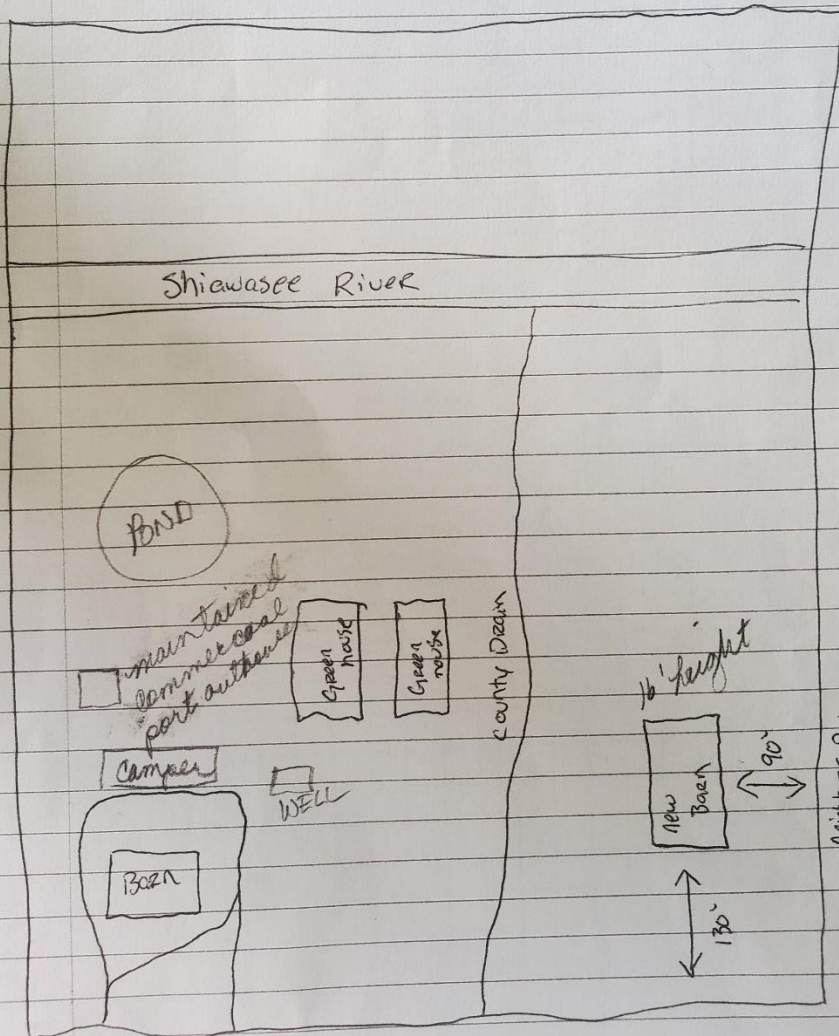 Shiawasee River
POND
maintained
commercoal
port outhouse
Green
house
Green
house
County Drain
16' height
Camper
WELL
New
Barn
90'
Barn
130'